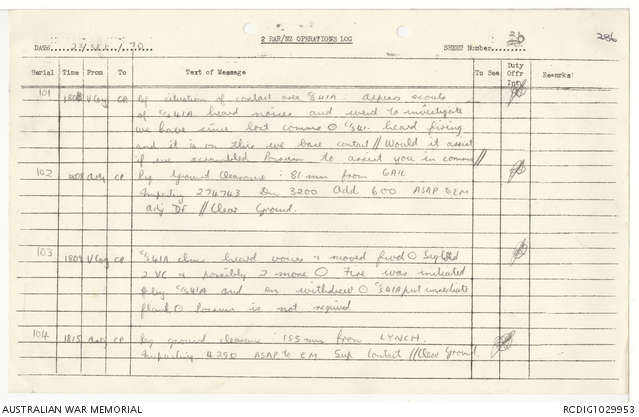 2 RAR/NZ OPERATIONS LOG
DATE 23/SEP/70 SHEET Number 26
286
Serial Time From To Text of Message To See Duty Offr Int Remarks
101 V Coy CP Ref situation of contact area C/S 41A. Appears scouts
of C/S 41A heard noises and went to investigate
we have since lost comms O C/S 41 heard firing
and it is on this we base contact // Would it assist
if we scrambled Possum to assist you in comms //
102 1808 Arty CP Req Ground Clearance: 81mm from GAIL
Impacting 274743 Dn 3200 Add 600 ASAP
adj DF // Clear Ground.
103 1809 V Coy CP C/S 41A claims heard voices & moved fwd O Sighted
2 VC & possibly 2 more O Fire was initiated
by C/S 41A and en withdrew O C/S 41A put immediate
O Possum is not required
104 1815 Arty CP Req ground clearance: 155mm from LYNCH.
Impacting 4290 ASAP to Sup Contact // Clear Ground.
AUSTRALIAN WAR MEMORIAL
RCDIG1029953